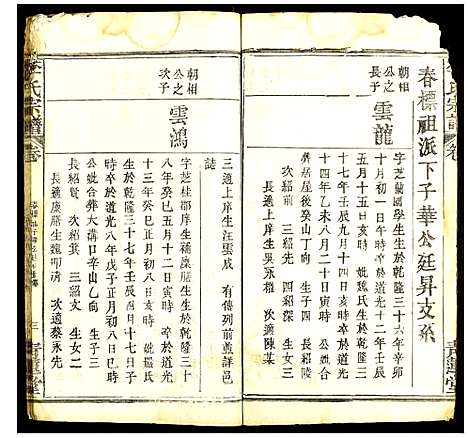 春標祖派下子華公廷昇支系
朝相公之長子
雲龍
字芝蘭國學生生於乾隆三十六年辛卯
十月初一日午時卒於道光十二年壬辰
五月十三日亥時 娩魏氏生於乾隆三
十七年壬辰九月十四日亥時卒於道光
十四年乙未八月二十日寅時 合
葬居屋後癸山丁向 生子四 長紹陵
次紹前 三紹先 四紹深 生女三
長適上庠生吳永權 次適陳某
三適上庠生汪雲成 有傳列前並詳邑
誌
朝相公之次子
雲鴻
字芝桂郡庠生補廩膳生生於乾隆三十
八年癸巳五月十二日寅時 卒於道光
十三年癸巳正月初八日亥時 娩羅氏
生於乾隆三十七年壬辰八月十七日子
時卒於道光八年戊子正月初八日巳時
公妣合葬大溝口辛山乙向 生子三
長紹賢 次紹箕 三紹文 生女二
長適慶膳生 次適蔡永先
李氏宗譜
卷
三
青蓮堂